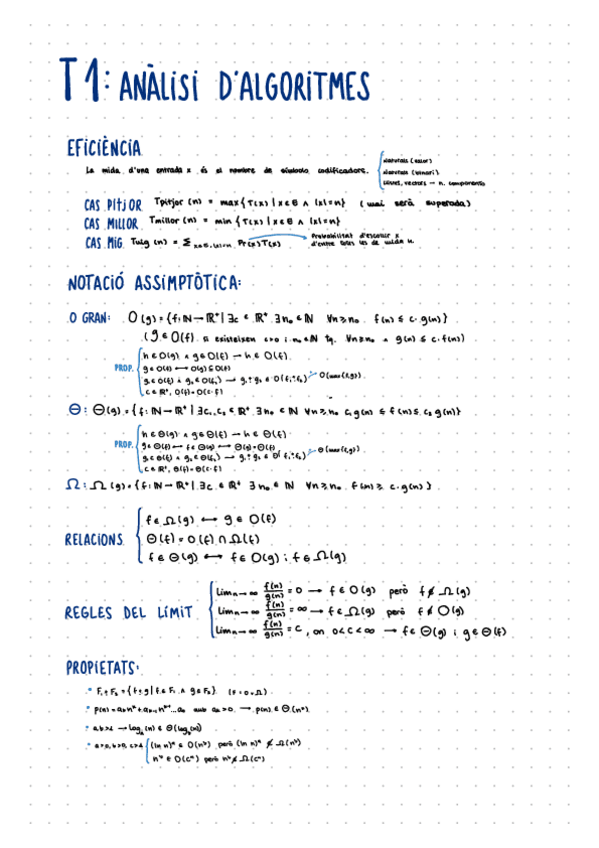 T1: ANÀLISI D'ALGORITMES
EFICIÈNCIA
La mida d'una entrada x és el nombre de símbols codificadors.
naturals (valor)
naturals (binari)
llistes, vectors → n. components
CAS PITJOR Tpitjor (n) = max{T(x) | x∈B ∧ |x|=n} (mai serà superada)
CAS MILLOR Tmillor (n) = min {T(x) | x∈B ∧ |x|=n}
CAS MIG Tmig (n) = Σ x∈B, |x|=n Pr(x)T(x)
Probabilitat d'escollir x
d'entre totes les de mida n.
NOTACIÓ ASSIMPTÒTICA:
O GRAN: O(g) = {f: ℕ → ℝ⁺ | ∃c ∈ ℝ⁺ ∃n₀ ∈ ℕ ∀n ≥ n₀ f(n) ≤ c·g(n)}
(g ∈ O(f) si existeixen c>0 i n₀ ∈ ℕ tq. ∀n ≥ n₀ ∧ g(n) ≤ c·f(n))
PROP.
h ∈ O(g) ∧ g ∈ O(f) → h ∈ O(f)
g ∈ O(f) ⟷ O(g) ⊆ O(f)
g₁ ∈ O(f₁) ∧ g₂ ∈ O(f₂) → g₁*g₂ ∈ O(f₁*f₂) O(max(f,g))
c ∈ ℝ⁺, O(f) = O(c·f)
Θ: Θ(g) = {f: ℕ → ℝ⁺ | ∃c₁,c₂ ∈ ℝ⁺ ∃n₀ ∈ ℕ ∀n ≥ n₀ c₁g(n) ≤ f(n) ≤ c₂g(n)}
PROP.
h ∈ Θ(g) ∧ g ∈ Θ(f) → h ∈ Θ(f)
g ∈ Θ(f) ⟷ f ∈ Θ(g) ⟷ Θ(g) = Θ(f)
g₁ ∈ Θ(f₁) ∧ g₂ ∈ Θ(f₂) → g₁*g₂ ∈ Θ(f₁*f₂) Θ(max(f,g))
c ∈ ℝ⁺, Θ(f) = Θ(c·f)
Ω: Ω(g) = {f: ℕ → ℝ⁺ | ∃c ∈ ℝ⁺ ∃n₀ ∈ ℕ ∀n ≥ n₀ f(n) ≥ c·g(n)}
RELACIONS
f ∈ Ω(g) ⟷ g ∈ O(f)
Θ(f) = O(f) ∩ Ω(f)
f ∈ Θ(g) ⟷ f ∈ O(g) i f ∈ Ω(g)
REGLES DEL LÍMIT
Lim n→∞ f(n)/g(n) = 0 → f ∈ O(g) però f ∉ Ω(g)
Lim n→∞ f(n)/g(n) = ∞ → f ∈ Ω(g) però f ∉ O(g)
Lim n→∞ f(n)/g(n) = c, on 0<c<∞ → f ∈ Θ(g) i g ∈ Θ(f)
PROPIETATS:
• F₁+F₂ = {f+g | f ∈ F₁ ∧ g ∈ F₂} (F = O, Ω)
• p(n) = aₖnᵏ + aₖ₋₁nᵏ⁻¹...a₀ amb aₖ>0 → p(n) ∈ Θ(nᵏ)
• a,b>1 → logₐ(n) ∈ Θ(log_b(n))
• a>0, b>0, c>1 (ln n)ᵃ ∈ O(nᵇ) però (ln n)ᵃ ∉ Ω(nᵇ)
nᵇ ∈ O(cⁿ) però nᵇ ∉ Ω(cⁿ)